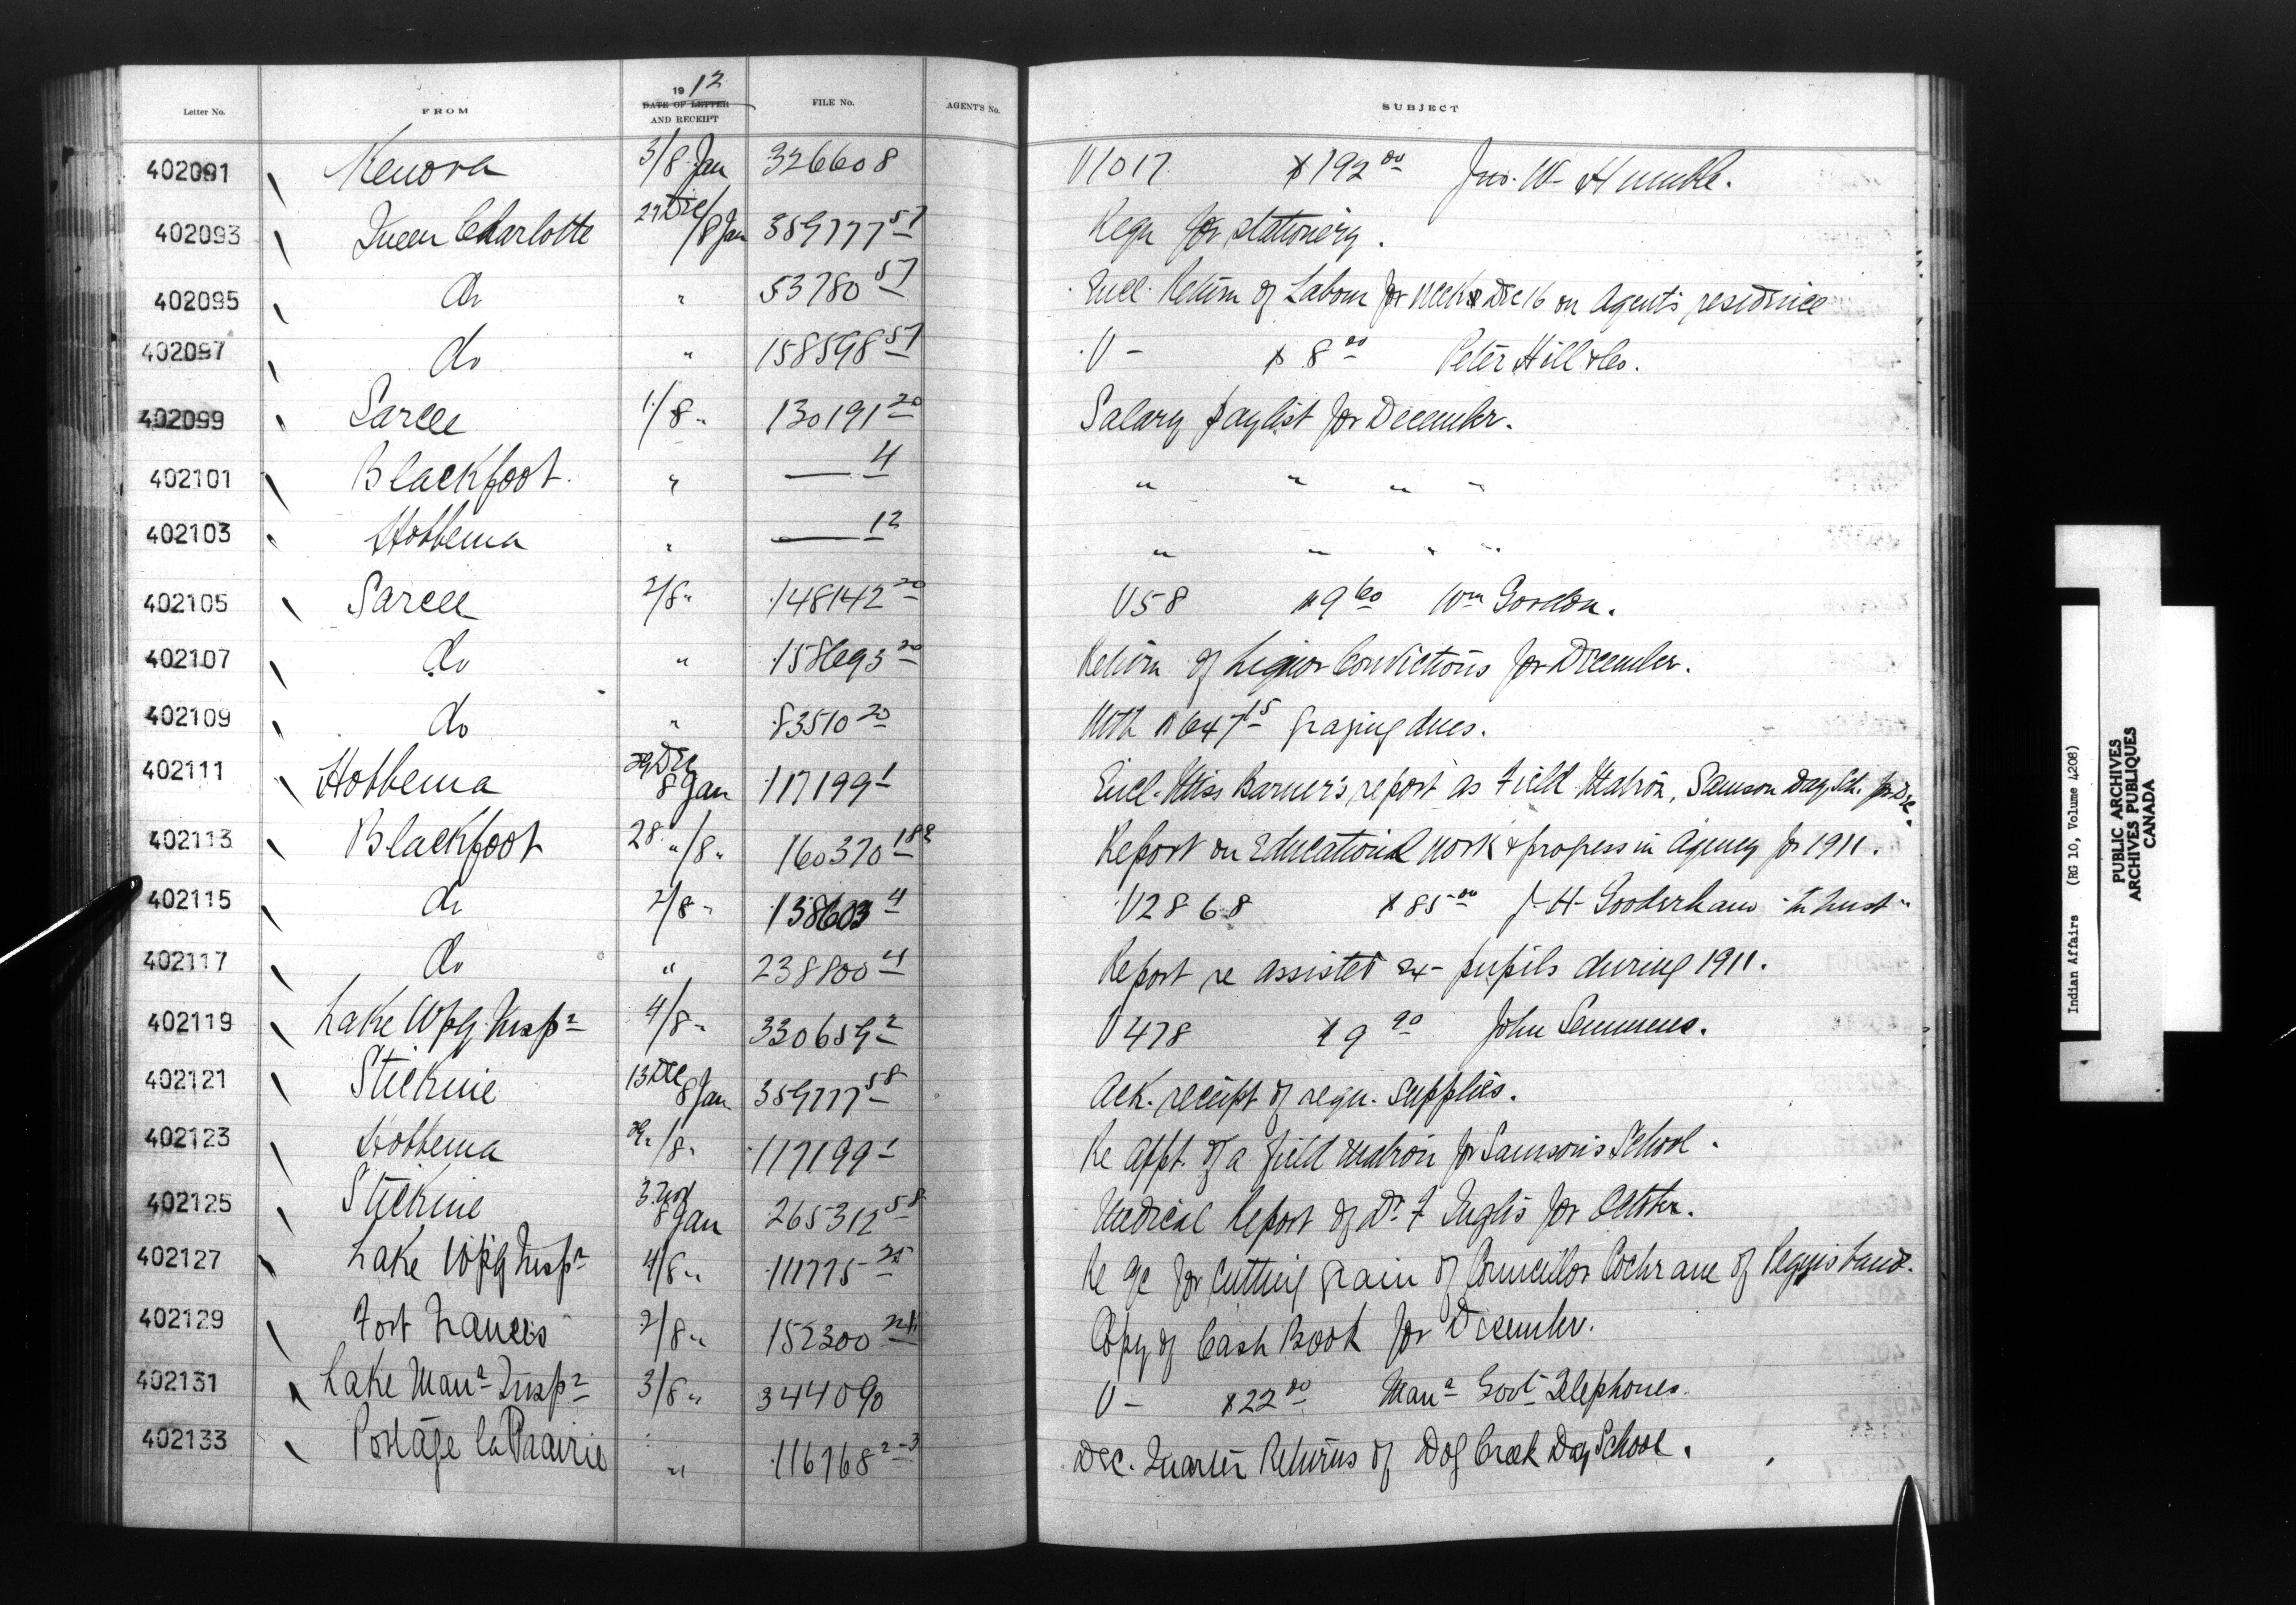 Letter No. FROM 1912 DATE OF LETTER AND RECEIPT FILE No. AGENT'S No. SUBJECT
402091 Kenora 3/8 Jan 326608 V1017 $192 00 Jno. W. Humble.
402093 Queen Charlotte 27 Dec/8 Jan 359777 57 Reqn for stationery.
402095 do " 53780 57 Encl. Return of Labour for week Dec 16 on Agent's residence
402097 do " 158598 57 V - $8 00 Peter Hill & Co.
402099 Sarcee 1/8 " 130191 20 Salary paylist for December.
402101 Blackfoot. " — 4 " " " "
402103 Hobbema " — 12 " " " "
402105 Sarcee 2/8 " 148142 20 V58 $9 60 Wm Gordon.
402107 do " 158693 20 Return of Liquor Convictions for December.
402109 do " 83510 20 With $647 15 grazing dues.
402111 Hobbema 29 Dec 8 Jan 117199 1 Encl. Miss Barner's report as Field Matron, Samson Day Sch. for Dec.
402113 Blackfoot 28 " /8 " 160370 182 Report on Educational work & progress in Agency for 1911.
402115 do 2/8 " 138603 4 V2868 $85 00 J. H. Gooderham "In trust"
402117 do " 238800 4 Report re assisted ex-pupils during 1911.
402119 Lake Wpg. Insp r 4/8 " 330659 2 V478 $9 90 John Semmens.
402121 Stickine 13 Dec 8 Jan 359777 58 Ack. receipt of reqn. supplies.
402123 Hobbema 29 " /8 " 117199 1 Re appt. of a field matron for Samson's School.
402125 Stickine 3 Nov 8 Jan 265312 58 Medical Report of Dr. F Inglis for October.
402127 Lake Wpg Insp r 4/8 " 111775 25 Re a/c for cutting grain of Councillor Cochrane of Peguis band.
402129 Fort Frances 2/8 " 152300 24 Copy of Cash Book for December.
402131 Lake Man a Insp r 3/8 " 344090 V - $22 00 Man a Govt Telephones.
402133 Portage la Prairie " 116768 2-3 Dec. Quarter Returns of Dog Creek Day School.
Indian Affairs (RG 10, Volume 4208)
PUBLIC ARCHIVES
ARCHIVES PUBLIQUES
CANADA